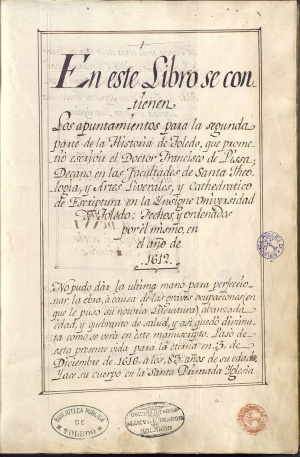 En este Libro se con
tienen
Los apuntamientos para la segunda
parte de la Historia de Toledo, que prome
tió escribir el Doctor Francisco de Pissa,
Decano en las facultades de Santa Theo
logia, y Artes Liverales, y Cathedratico
de Escriptura en la Insigne Universidad
de Toledo: fechos, y ordenados
por èl mismo, en
el año de
1612.
No pudo dàr la ultima mano para perfeccio
nar la obra, à causa de las graves ocupaciones en
que le puso su notoria literatura, abanzada
edad, y quebranto de salud, y asi quedó diminu
ta como se verà en este manuscripto. Pasó de
esta presente vida para la eterna en 3. de
Diciembre de 1616. à los 83. años de su edad.
Yaze su cuerpo en la Santa Primada Yglesia
BIBLIOTECA PUBLICA
DE
TOLEDO